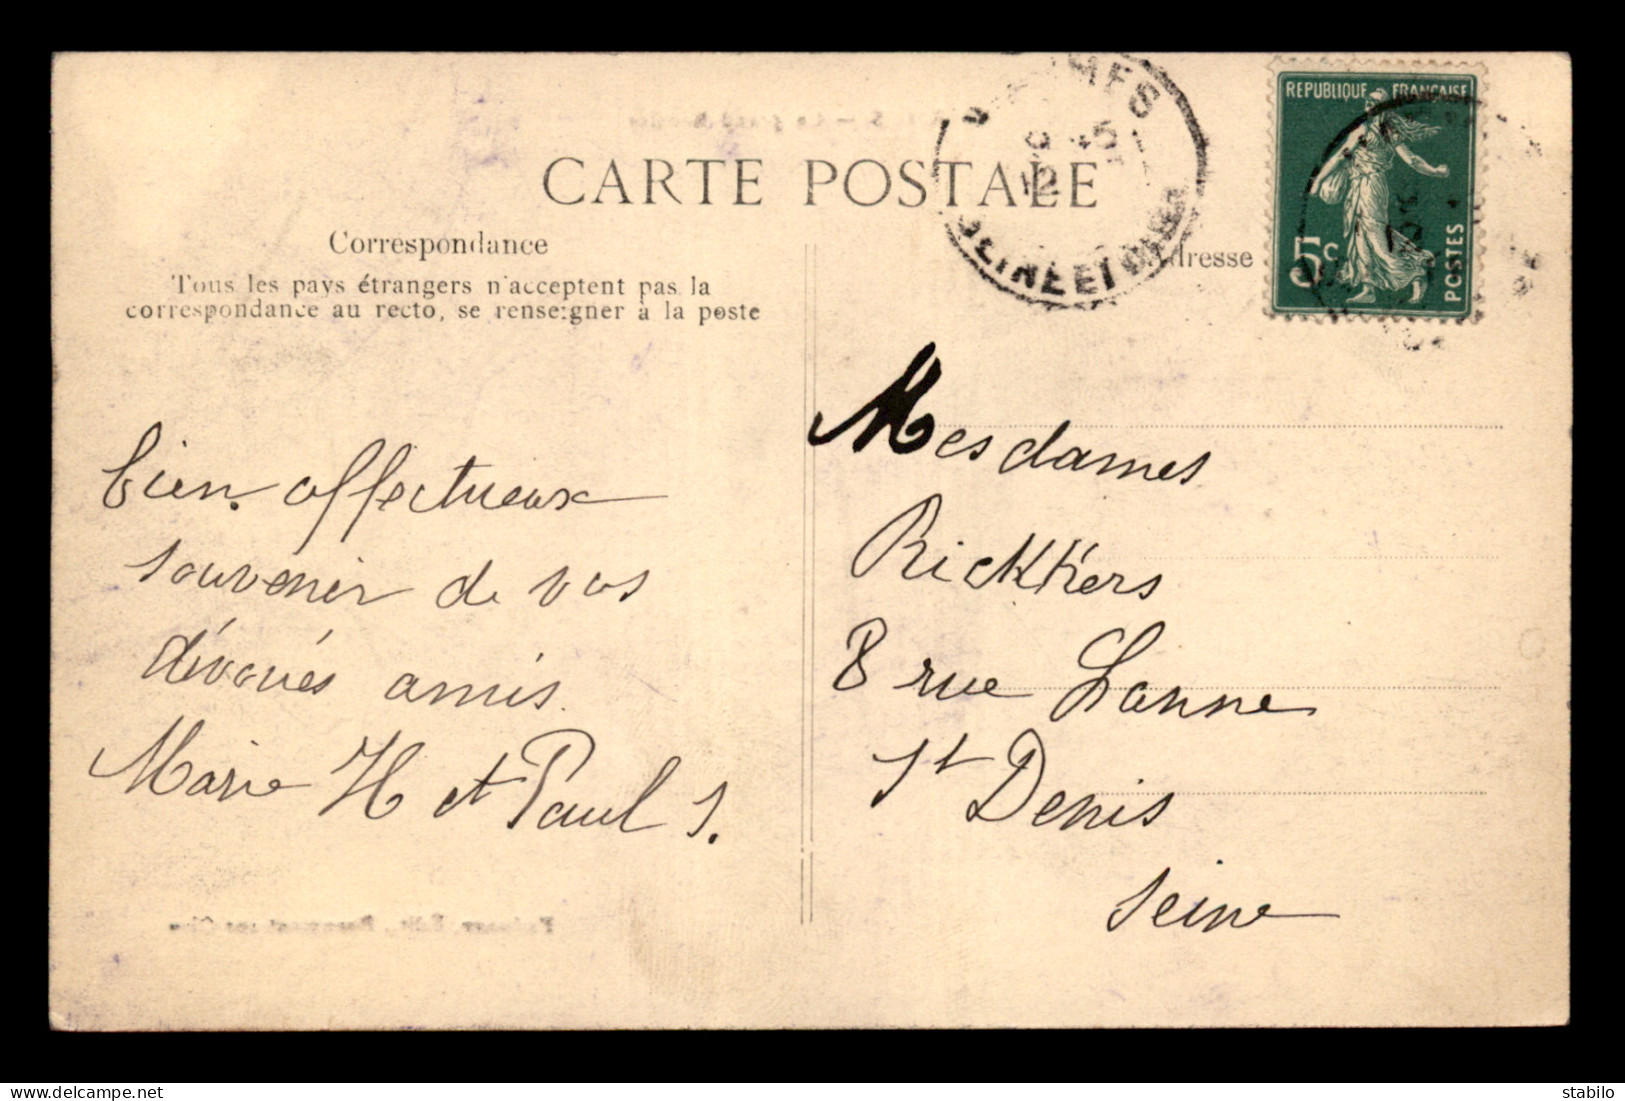 CARTE POSTALE
Correspondance
Tous les pays étrangers n'acceptent pas la
correspondance au recto, se renseigner à la poste
Bien affectueux
souvenir de vos
dévoués amis.
Marie H et Paul S.
RÉPUBLIQUE FRANÇAISE
5c
POSTES
SEINE ET OISE
12
45
Adresse
Mesdames
Rickhers
8 rue Lanne
St Denis
Seine
stabilo